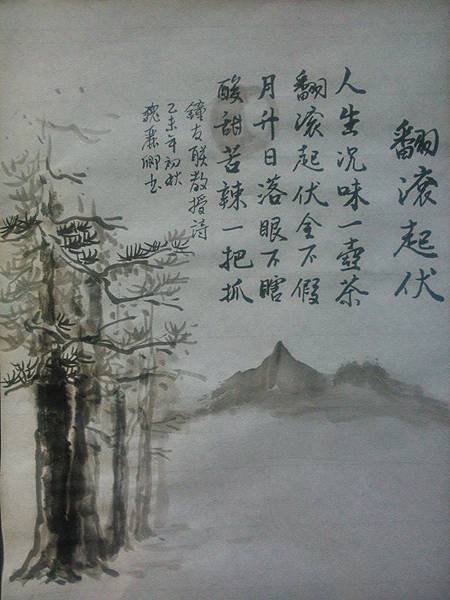 翻滾起伏
人生況味一壺茶
翻滾起伏全不假
月升日落眼不瞎
酸甜苦辣一把抓
鐘友聯教授詩
乙未年初秋
魏麗卿書